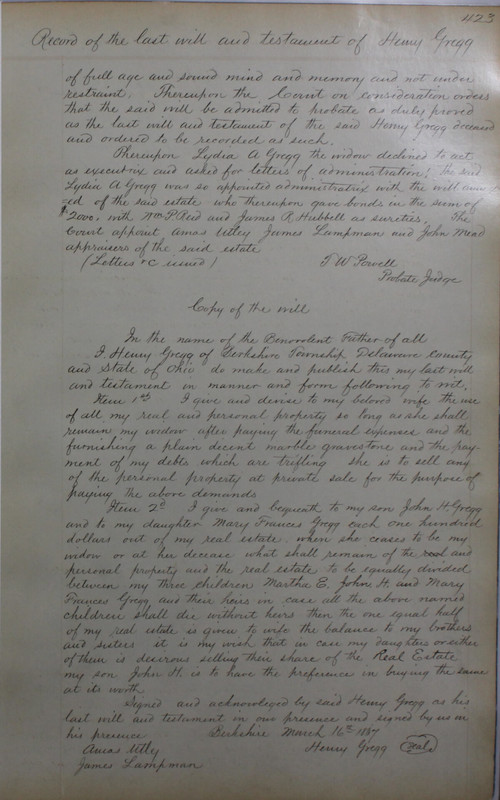 423
Record of the last will and testament of Henry Gregg
of full age and sound mind and memory and not under
restraint. Thereupon the Court on consideration orders
that the said will be admitted to probate as duly proved
as the last will and testament of the said Henry Gregg deceased
and ordered to be recorded as such.
Thereupon Lydia A Gregg the widow declined to act
as executrix and asked for letters of administration. The said
Lydia A Gregg was so appointed administratrix with the will annex
ed of the said estate who thereupon gave bonds in the sum of
$2000. with Wm P Reid and James R Hubbell as sureties. The
Court appoint Amas Utley James Lampman and John Mead
appraisers of the said estate
(Letters &c issued) T W Powell
Probate Judge
Copy of the will
In the name of the Benevolent Father of all
I, Henry Gregg of Berkshire Township Delaware County
and State of Ohio do make and publish this my last will
and testament in manner and form following to wit,
Item 1st I give and devise to my beloved wife the use
of all my real and personal property so long as she shall
remain my widow after paying the funeral expenses and the
furnishing a plain decent marble gravestone and the pay-
ment of my debts which are trifling she is to sell any
of the personal property at private sale for the purpose of
paying the above demands
Item 2d I give and bequeath to my son John H Gregg
and to my daughter Mary Frances Gregg each one hundred
dollars out of my real estate. when she ceases to be my
widow or at her decease what shall remain of the real and
personal property and the real estate to be equally divided
between my three children Martha E, John H. and Mary
Frances Gregg and their heirs in case all the above named
children shall die without heirs then the one equal half
of my real estate is given to wife the balance to my brothers
and sisters it is my wish that in case my daughters or either
of them is desirous selling their share of the Real Estate
my son John H. is to have the preference in buying the same
at its worth
Signed and acknowleged by said Henry Gregg as his
last will and testament in our presence and signed by us in
his presence Berkshire March 16th 1867
Amas Utley Henry Gregg (seal)
James Lampman